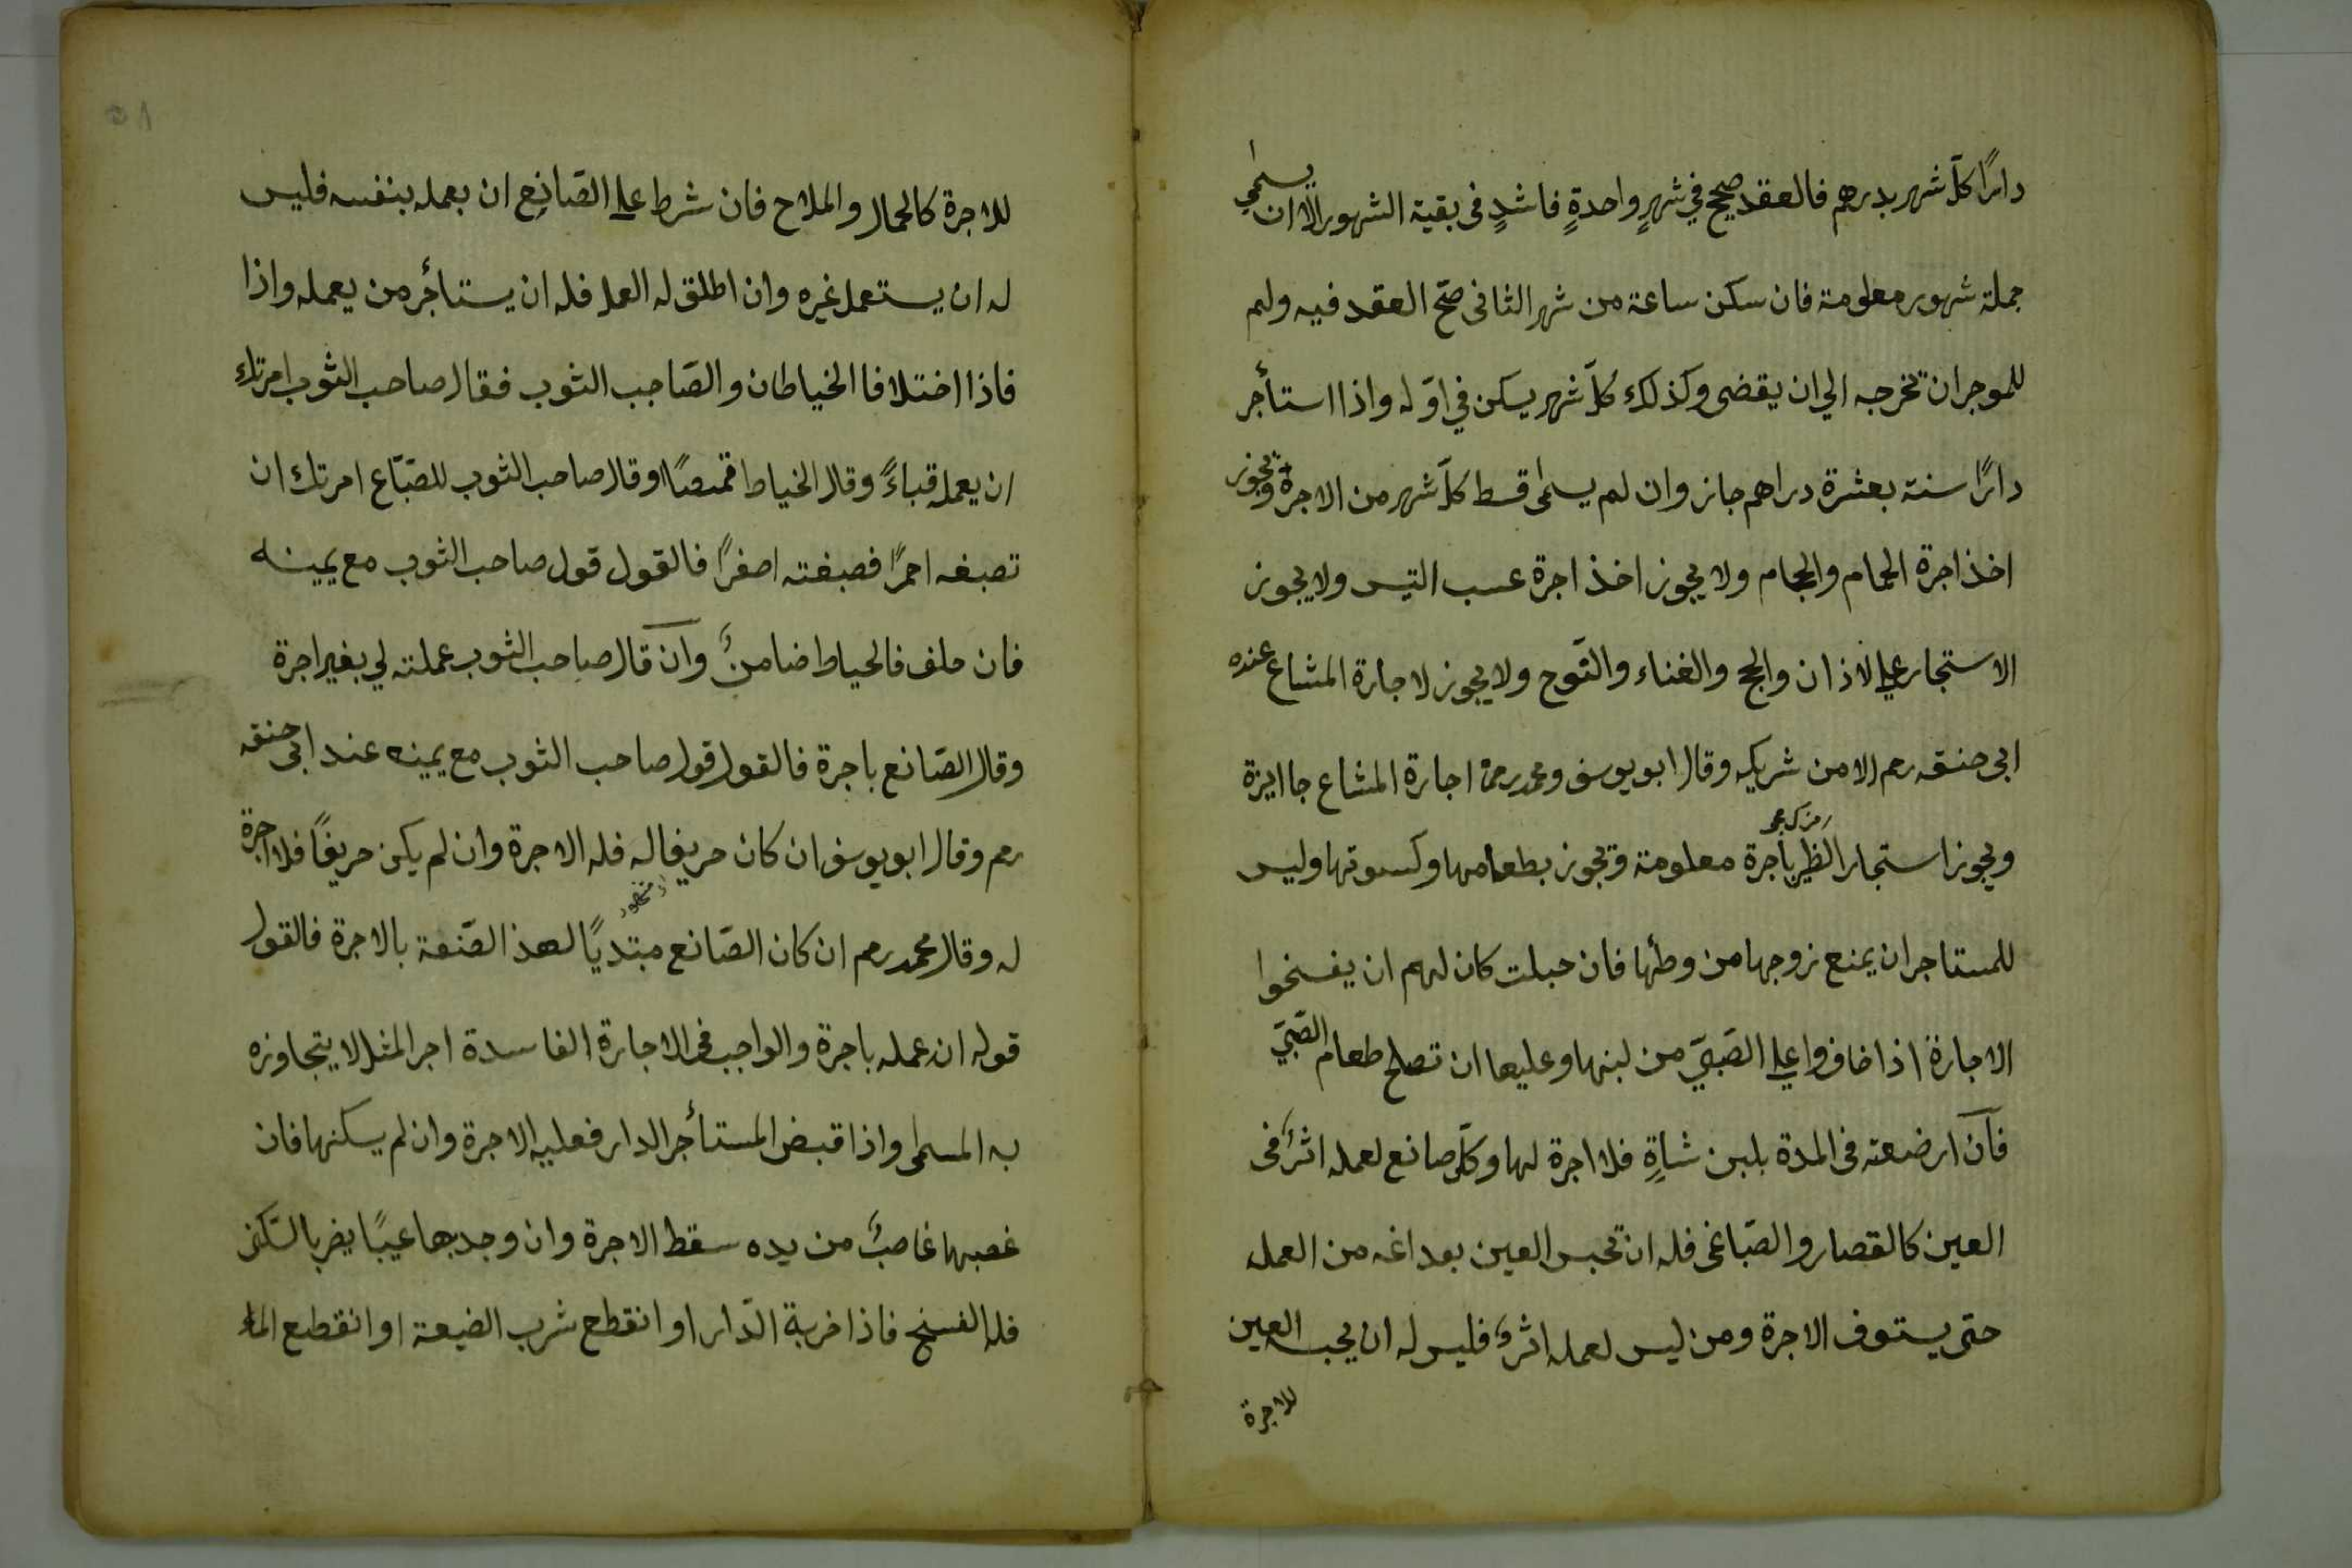 دارًا كلّ شهر بدرهم فالعقد صحيح في شهرٍ واحدةٍ فاشدٍ فى بقية الشهور الا ان يسمى
جملة شهور معلومة فان سكن ساعة من شهر الثانى صحّ العقد فيه ولم
للموجر ان تخرجه الي ان يقضى وكذلك كلّ شهر يسكن في اوّله واذا استأجر
دارًا سنة بعشرة دراهم جاز وان لم يسمى قسط كلّ شهر من الاجرة وتجوز
اخذ اجرة الحمام والحجام ولا يجوز اخذ اجرة عسب التيس ولا يجوز
الاستجار علي الاذان والحج والغناء والنّوح ولا يجوز لاجارة المشاع عنده
ابى حنفه رحم الا من شريكه وقال ابو يوسف ومحمد رحمه اجارة المشاع جاايزة
ويجوز استجار الظير باجرة معلومة وتجوز بطعامها وكسوتها وليس
للمستاجر ان يمنع زوجها من وطئها فان حبلت كان لهم ان يفسخوا
الاجارة اذا خافوا علي الصّبيّ من لبنها وعليها ان تصلح طعام الصّبيّ
فان ارضعته فى المدة بلبن شاةٍ فلا اجرة لها وكلّ صانع لعمله اثرٌ فى
العين كالقصار والصّباغى فله ان تحبس العين بعد اغه من العمل
حتى يستوف الاجرة ومن ليس لعمله اثرٌ فليس له ان يحبس العين
للاجرة
للاجرة كالحمال والملاح فان شرط علي الصّانع ان يعمله بنفسه فليس
له ان يستعمل غيره وان اطلق له العمل فله ان يستأجر من يعمله واذا
فاذا اختلافا الخياطان والصّاحب الثوب فقال صاحب الثوب امرتك
ان يعمل قباءً وقال الخياط قمصًا او قال صاحب الثوب للصّبّاع امرتك ان
تصبغه احمرًا فصبغته اصفرًا فالقول قول صاحب الثوب مع يمينه
فان حلف فالخياط ضامنٌ وان قال صاحب الثوب عملته لي بغير اجرة
وقال الصّانع باجرة فالقول قول صاحب الثوب مع يمينه عند ابى حنفه
رحم وقال ابو يوسف ان كان حريفا له فله الاجرة وان لم يكن حريفًا فلا اجرة
له وقال محمد رحم ان كان الصّانع مبتديًا لهذ الصّنعة بالاجرة فالقول
قوله ان عمله باجرة والواجب فى الاجارة الفاسدة اجر المثل لا يتجاوزه
به المسمى واذا قبض المستأجر الدار فعليه الاجرة وان لم يسكنها فان
غصبها غاصبٌ من يده سقط الاجرة وان وجد بها عيبًا يضر بالسّكنى
فله الفسخ فاذا خربة الدّار او انقطع شرب الضيعة او انقطع الماء